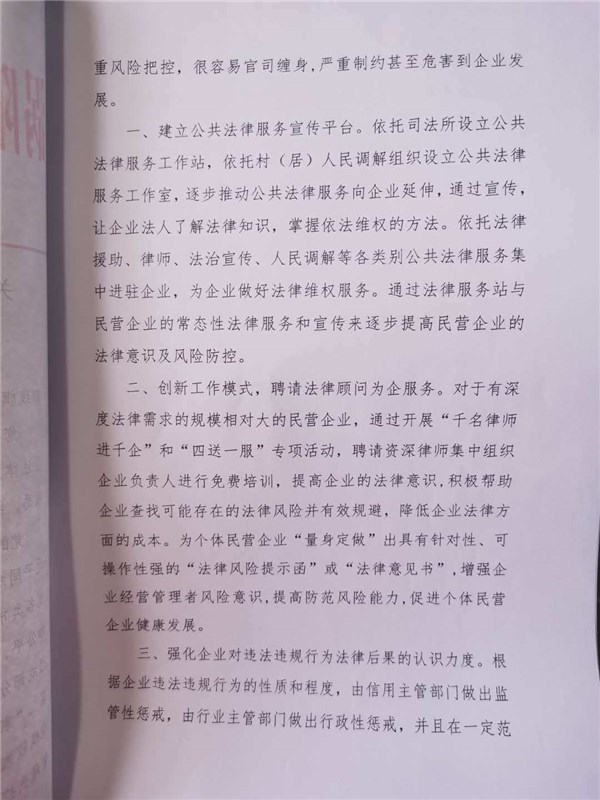 重风险把控，很容易官司缠身,严重制约甚至危害到企业发
展。
一、建立公共法律服务宣传平台。依托司法所设立公共
法律服务工作站，依托村（居）人民调解组织设立公共法律
服务工作室,逐步推动公共法律服务向企业延伸，通过宣传,
让企业法人了解法律知识，掌握依法维权的方法。依托法律
援助、律师、法治宣传、人民调解等各类别公共法律服务集
中进驻企业，为企业做好法律维权服务。通过法律服务站与
民营企业的常态性法律服务和宣传来逐步提高民营企业的
法律意识及风险防控。
二、创新工作模式，聘请法律顾问为企服务。对于有深
度法律需求的规模相对大的民营企业，通过开展“千名律师
进千企”和“四送一服”专项活动，聘请资深律师集中组织
企业负责人进行免费培训，提高企业的法律意识,积极帮助
企业查找可能存在的法律风险并有效规避，降低企业法律方
面的成本。为个体民营企业“量身定做”出具有针对性、可
操作性强的“法律风险提示函”或“法律意见书”,增强企
业经营管理者风险意识,提高防范风险能力,促进个体民营
企业健康发展。
三、强化企业对违法违规行为法律后果的认识力度。根
据企业违法违规行为的性质和程度，由信用主管部门做出监
管性惩戒，由行业主管部门做出行政性惩戒，并且在一定范